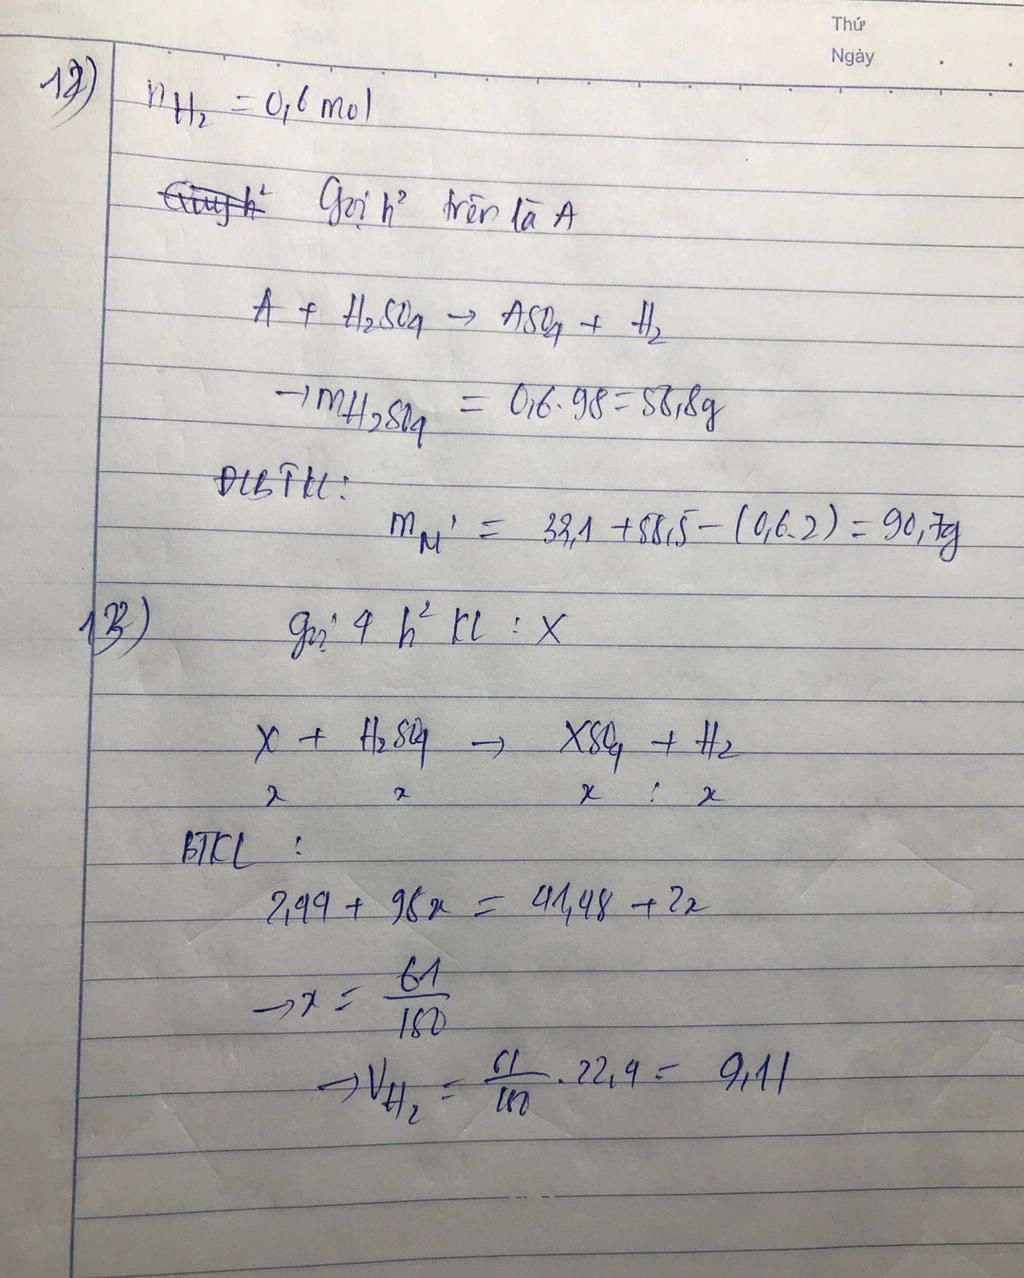 Thứ
Ngày
12)
nH₂ = 0,6 mol
Gọi h² trên là A
A + H₂SO₄ → ASO₄ + H₂
→ mH₂SO₄ = 0,6.98 = 58,8g
ĐLBTKL:
mM' = 33,1 + 58,5 - (0,6.2) = 90,7g
13)
gọi 4 h² KL : X
X + H₂SO₄ → XSO₄ + H₂
x x x : x
BTKL :
2,44 + 98x = 41,48 + 2x
→ x = 61/150
→ VH₂ = 61/150 . 22,4 = 9,11